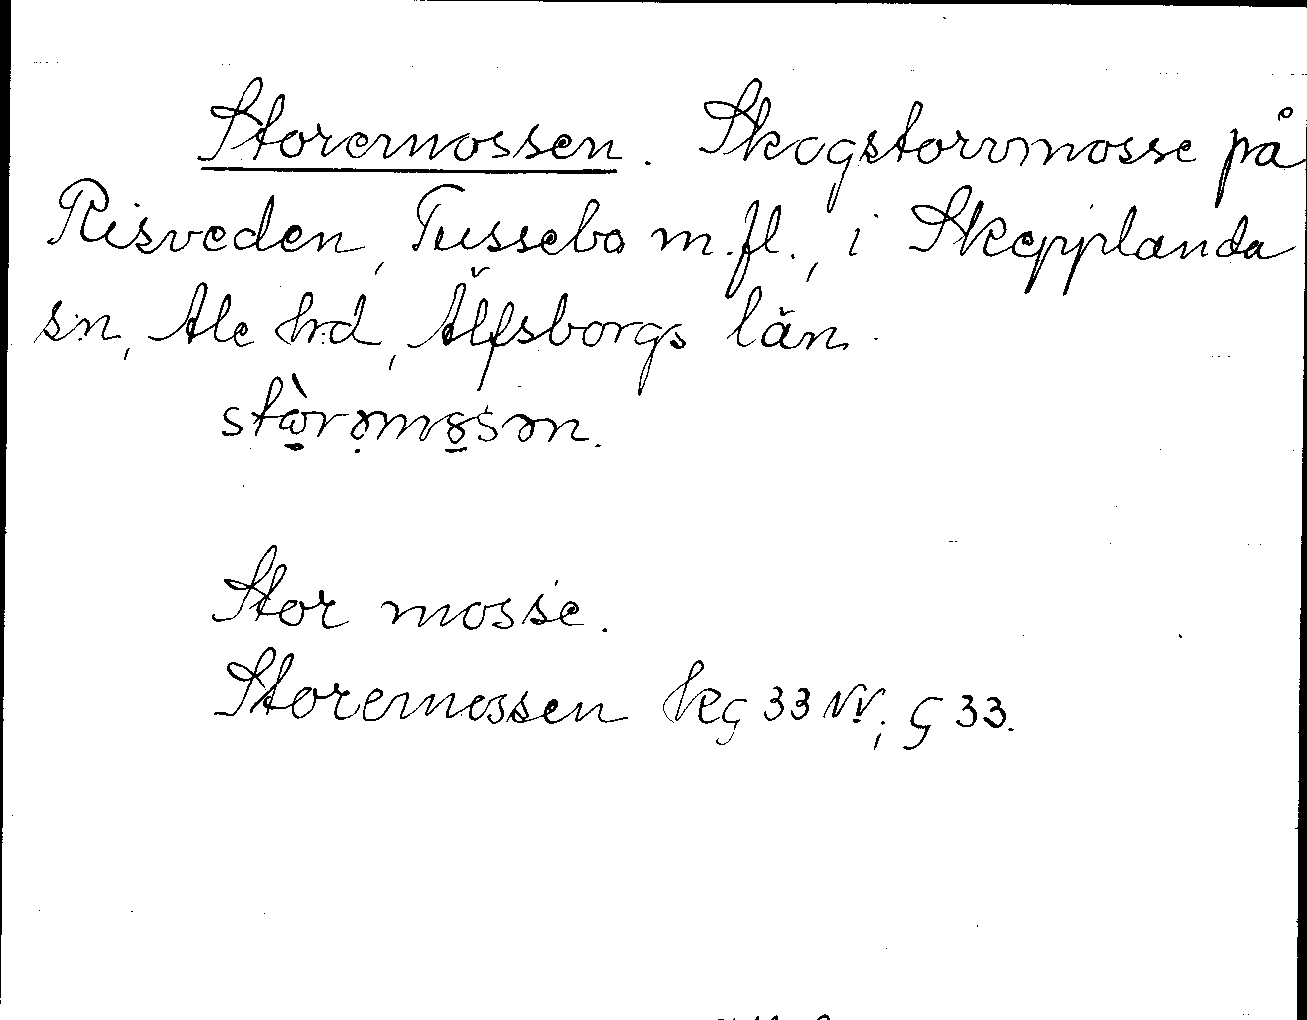 Storemossen. Skogstorvmosse på
Risveden, Tussebo m.fl., i Skepplanda
sn, Ale hd, Älfsborgs län.
stòrəmosən.
Stor mosse.
Storemossen hkg 33 NV; G 33.